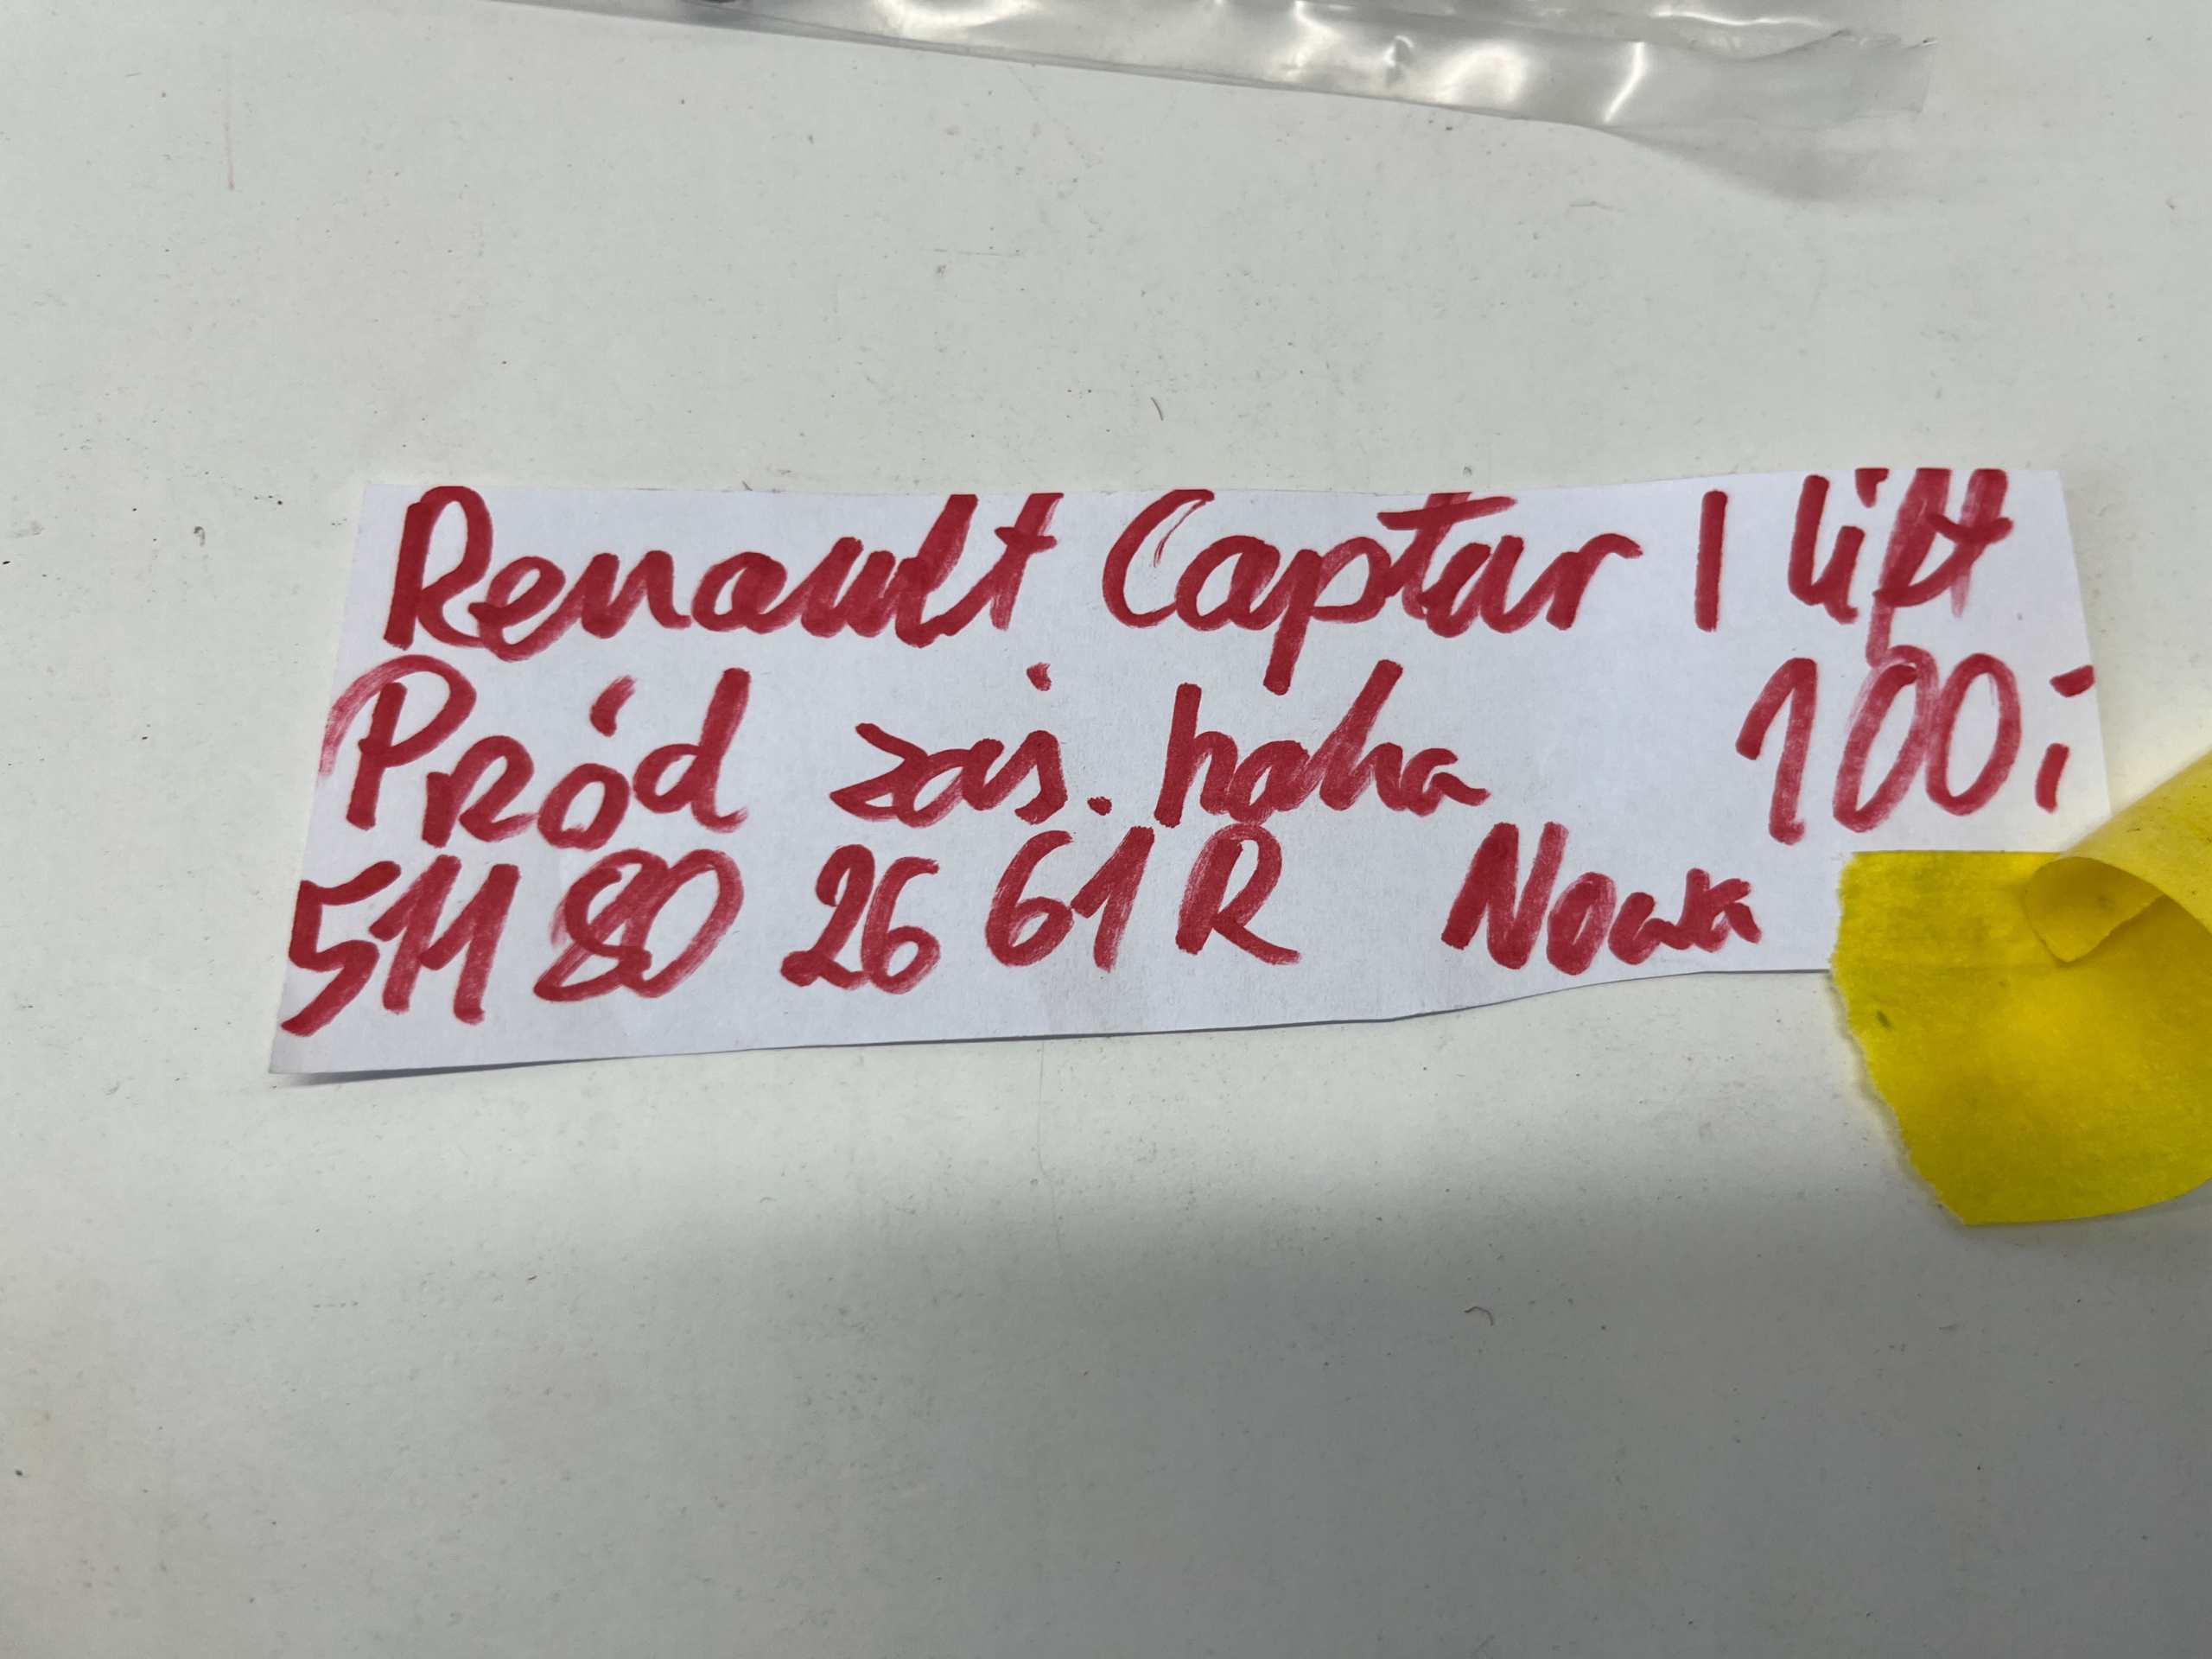 Renault Captur I lift
Przód zaś. haka 100,-
511 80 26 61 R Nowa